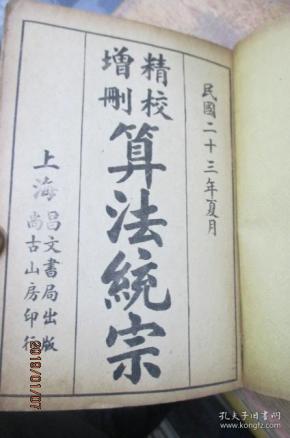 民國二十三年夏月
精校
增刪
算法統宗
上海
昌文書局出版
尚古山房印行
2018/01/07
孔夫子旧书网